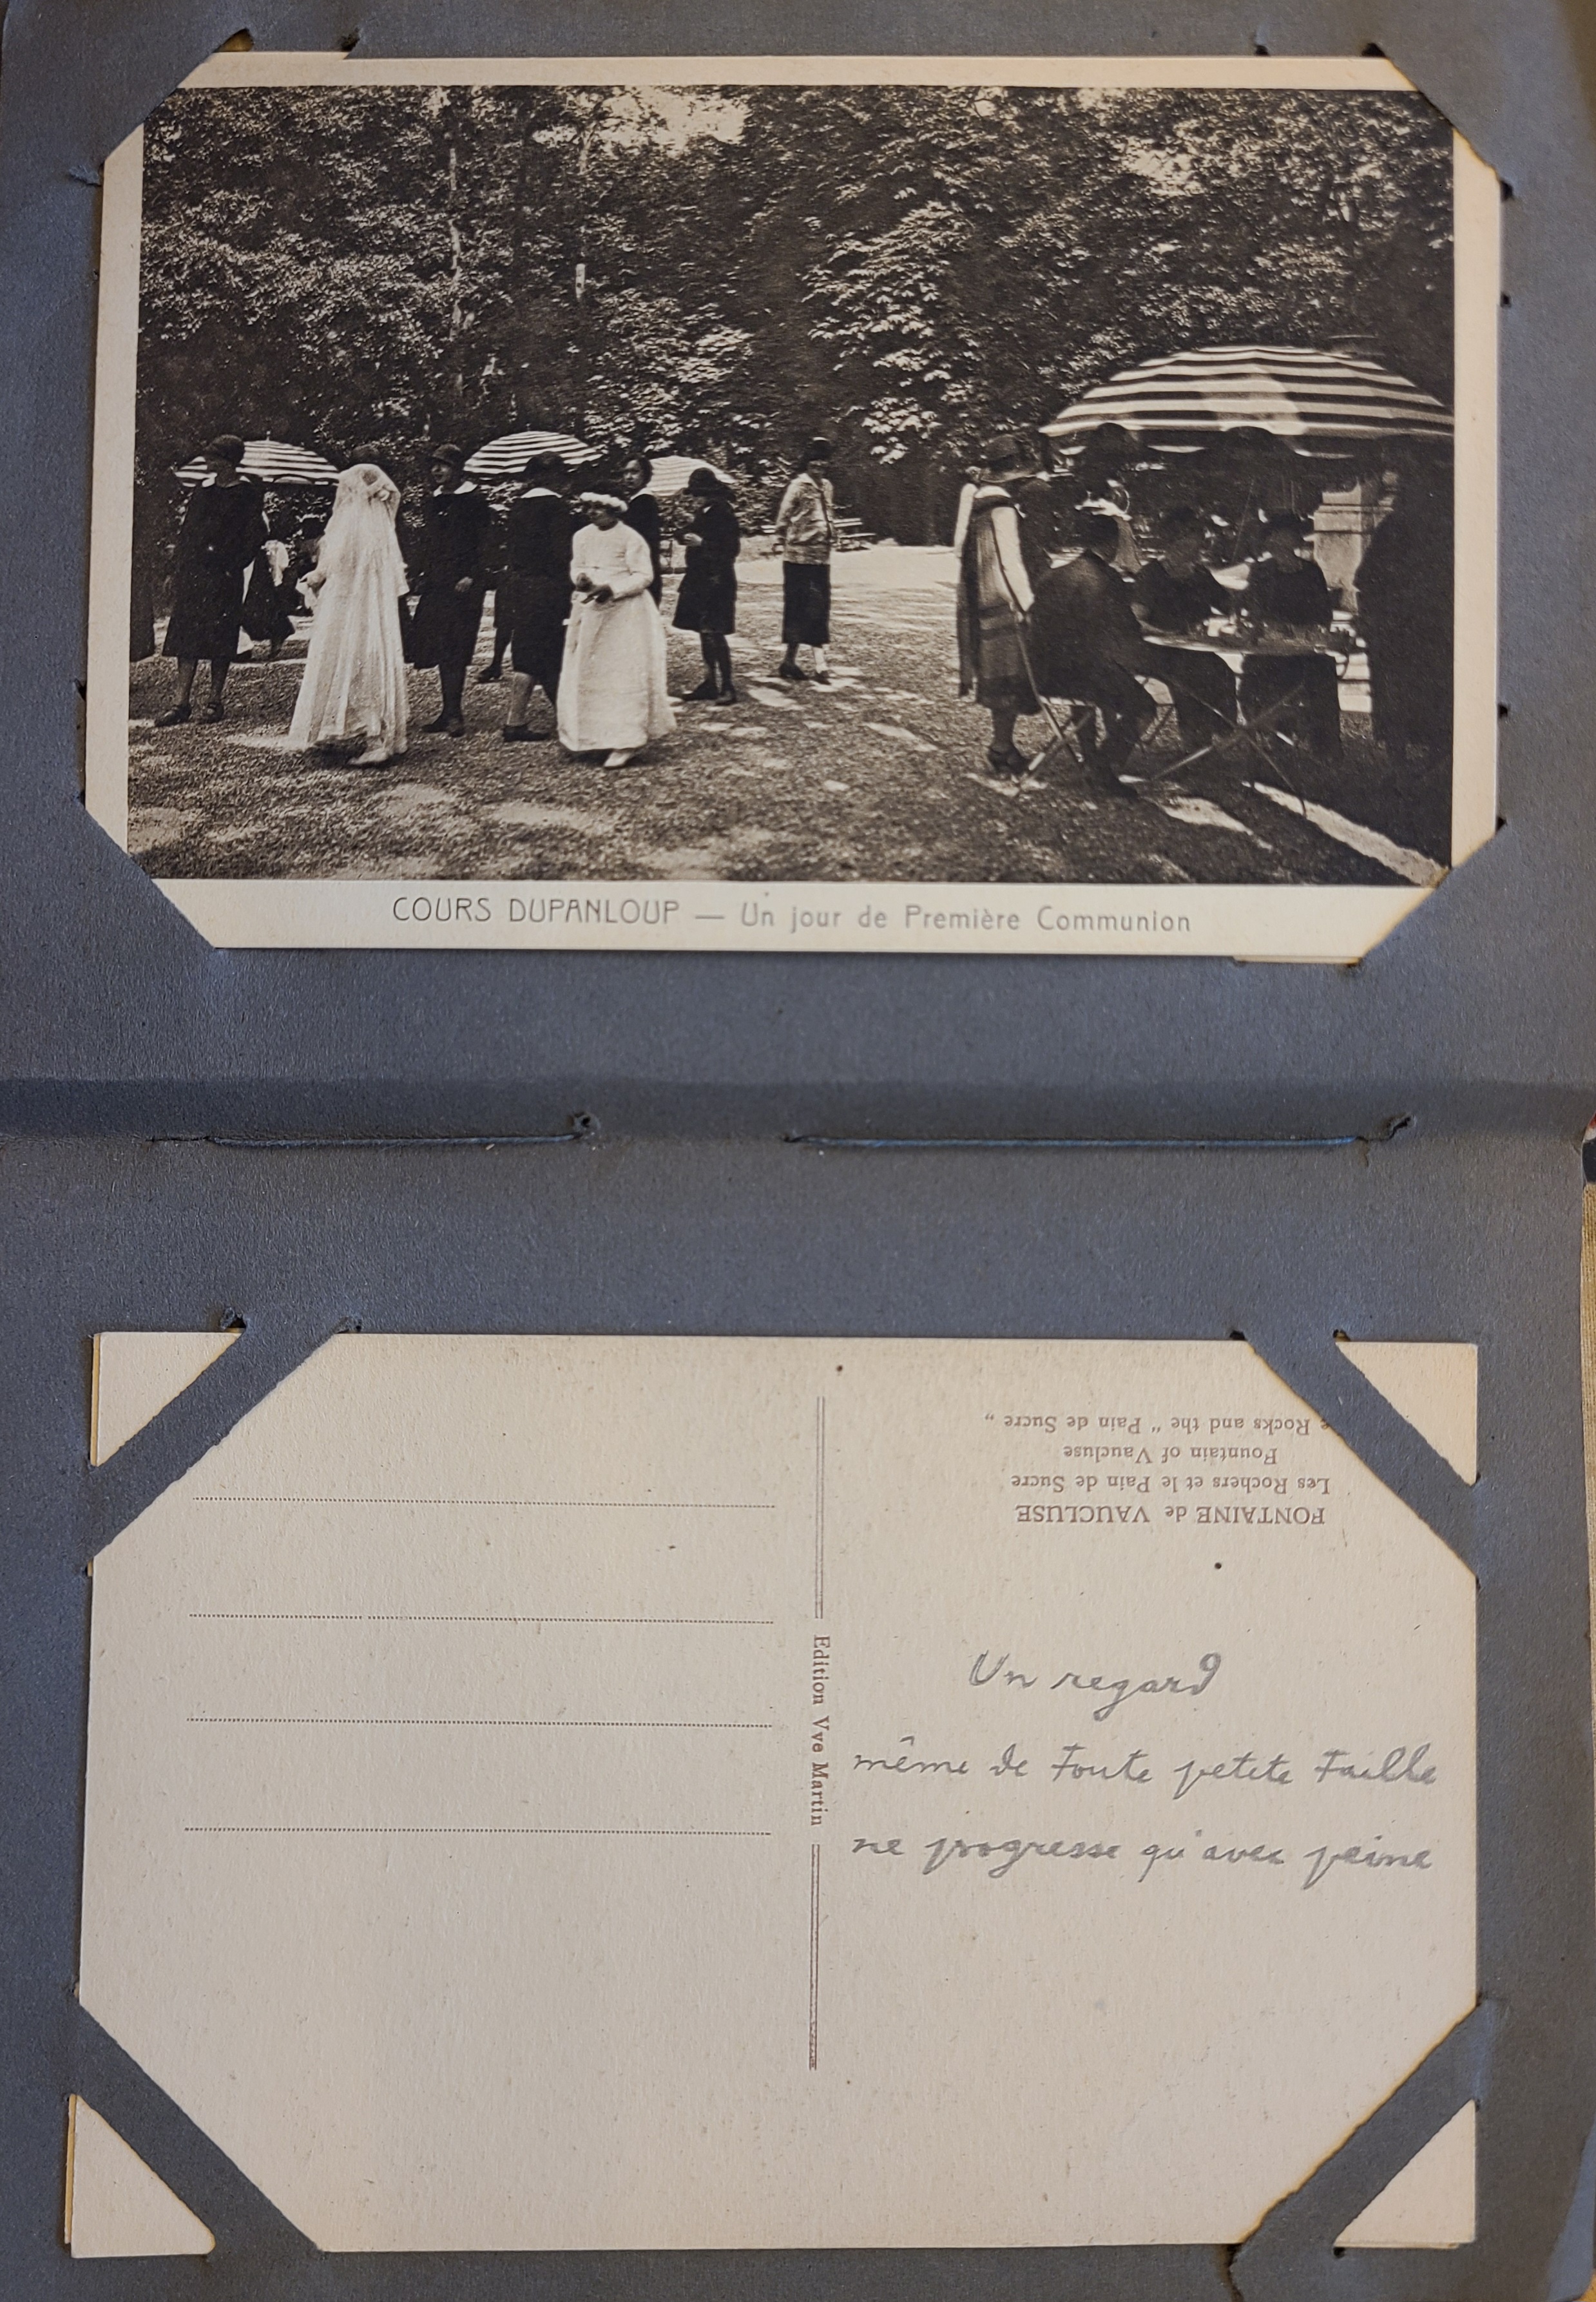 COURS DUPANLOUP — Un jour de Première Communion
FONTAINE de VAUCLUSE
Les Rochers et le Pain de Sucre
Fountain of Vaucluse
Rocks and the " Pain de Sucre „
Edition Vve Martin
Un regard
même de toute petite taille
ne progresse qu'avec peine